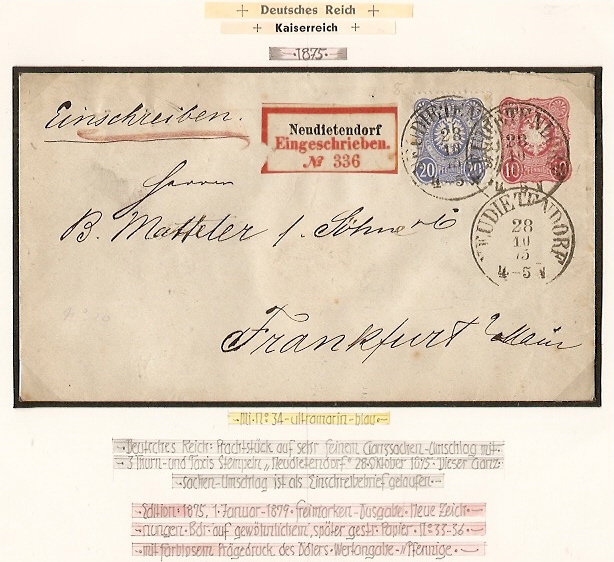 Deutsches Reich
Kaiserreich
1875
Einschreiben.
Neudietendorf
Eingeschrieben.
No 336
20 20
10 10
NEUDIETENDORF
28
10
4-5 N
NEUDIETENDORF
28
10
4-5 N
NEUDIETENDORF
28
10
75
4-5 N
Herren
B. Matteler & Söhne
Frankfurt a/Main
Mi. No 34 - ultramarin-blau
Deutsches Reich: Prachtstück auf sehr feinem Ganzsachen-Umschlag mit
3 Thurn- und Taxis Stempeln „Neudietendorf" 28. Oktober 1875. Dieser Ganz-
sachen-Umschlag ist als Einschreibebrief gelaufen.
Edition: 1875, 1. Januar - 1879 Freimarken-Ausgabe. Neue Zeich-
nungen. Bdr. auf gewöhnlichem, später gestr. Papier. No 33-36
mit farblosem Prägedruck des Adlers. Wertangabe „Pfennige